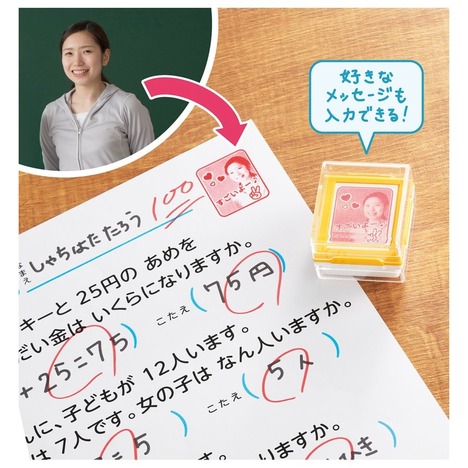 好きな
メッセージも
入力できる!
すごいよー♪
すごいよー♪
なまえ しゃちはた たろう 100
キーと 25円の あめを
だい金は いくらになりますか。
+25=75) こたえ (75円)
んに、子どもが 12人います。
は 7人です。女の子は なん人いますか。
=5) こたえ (5人)